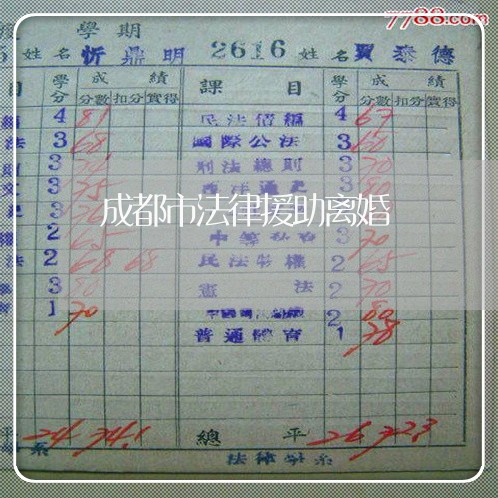 7788.com
學期
姓名 忻鼎明 2616 姓名 賈泰德
目 學分 成績 課目 學分 成績
分數 扣分 實得 分數 扣分 實得
4 81 民法債編 4 67
法 3 68 國際公法 3 60
3 刑法總則 3 70
3 75 西洋通史 3
成都市法律援助离婚
2 3 70
法 2 68 68 民法物權 2 65
3 憲法 2 70
1 70 2 80
普通體育 1 78
平 24 74.1 總平 26 72.3
系 法律學系